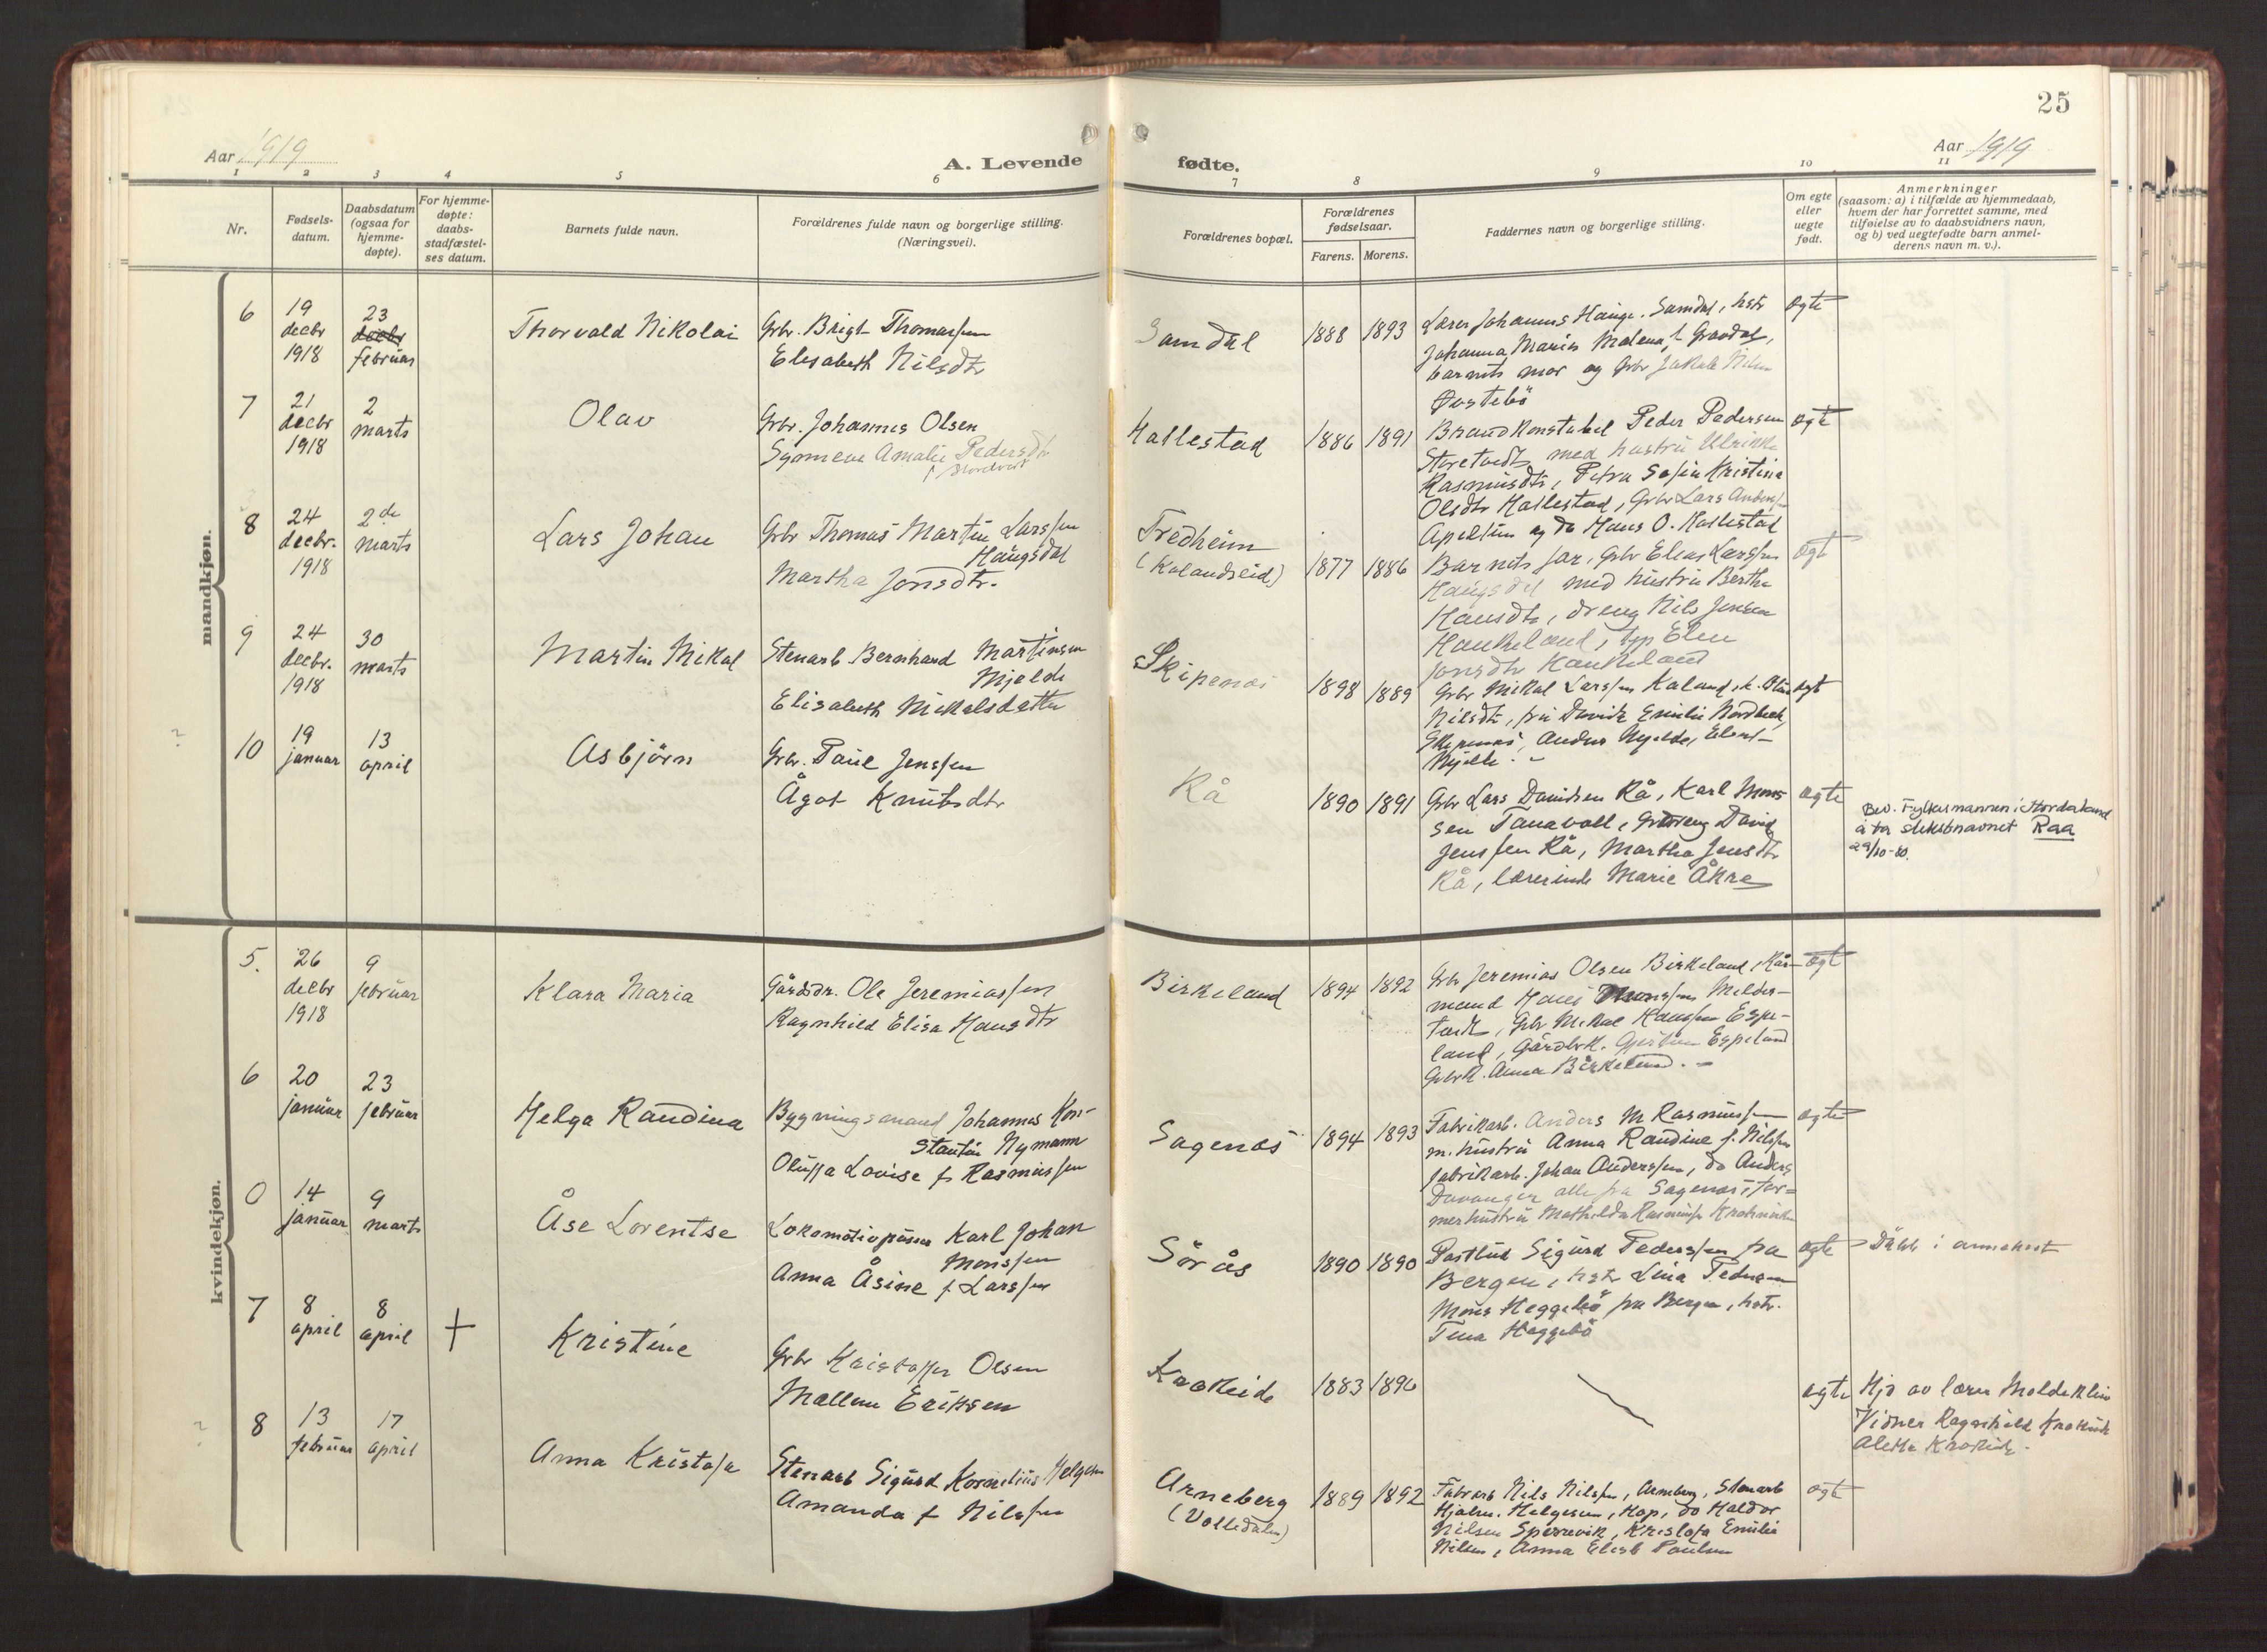 25
Aar 1919
A. Levende
fødte.
Aar 1919
1 2 3 4 5 6 7 8 9 10 11
Nr.
Fødsels-
datum.
Daabsdatum
(ogsaa for
hjemme-
døpte).
For hjemme-
døpte:
daabs-
stadfæstel-
ses datum.
Barnets fulde navn.
Forældrenes fulde navn og borgerlige stilling.
(Næringsvei).
Forældrenes bopæl.
Forældrenes
fødselsaar.
Farens. Morens.
Faddernes navn og borgerlige stilling.
Om egte
eller
uegte
født.
Anmerkninger
(saasom: a) i tilfælde av hjemmedaab,
hvem der har forrettet samme, med
tilføielse av to daabsvidners navn,
og b) ved uegtefødte barn anmel-
derens navn m. v.).
mandkjøn.
6
19
decbr
1918
23
decbr
februar
Thorvald Nikolai
Grbr. Brigt Thomassen
Elisabeth Nilsdtr
Samdal
1888 1893
Lærer Johannes Hauge, Samdal, hstr
Johanna Marie Malena f. Gravdal,
barnets mor og Grbr Jakob Nilsen
Øvstebö
egte
7
21
decbr
1918
2
marts
Olav
Grbr. Johannes Olsen
Synneva Amalie Pedersdtr
Hallestad
1886 1891
Brandkonstabel Peder Pedersen
Storetvedt med hustru Ulrikke
Rasmusdtr, Petra Sofie Kristine
Olsdtr Hallestad, Grbr Lars
Apeltun og do Hans O. Hallestad
egte
8
24
decbr.
1918
2de
marts
Lars Johan
Grbr Thomas Martin Larssen
Haugsdal
Martha Jonsdtr.
Fredheim
(Kalandseid)
1877 1886
Barnets far, Grbr Elias Larssen
Haugsdal med hustru Bertha
Hansdtr, dreng Nils Jensen
Haukeland, pp Elen
Jonsdtr Haukeland
egte
9
24
decbr.
1918
30
marts
Martin Mikal
Stenarb. Bernhard Martinsen
Mjelde
Elisabeth Mikalsdatter
Skipenes
1898 1889
Grbr Mikal Larssen Kaland, h.
Nilsdtr, fru Emilie Nordbek,
Skipenes, Anders Mjelde,
Mjelde. -
egte
10
19
januar
13
april
Asbjörn
Grbr. Paul Jenssen
Ågot Knutsdtr
Rå
1890 1891
Grbr Lars Davidsen Rå, Karl Mons-
sen Tanavoll, Grdreng David
Jenssen Rå, Martha Jensdtr
Rå, lærerinde Marie Åkre
egte
Bev. Fylkesmannen i Hordaland
å ta slektsnavnet Raa
29/10-80.
kvindekjøn.
5.
26
decbr
1918
9
februar
Klara Maria
Gårdbr. Ole Jeremiassen
Ragnhild Elisa Hansdtr
Birkeland
1894 1892
Grbr Jeremias Olsen Birkeland, Kår-
mand Hans Monssen Milde-
tvedt, Grbr Mikal Hanssen Espe-
land, Gårdbrk. Espeland
Grbrk. Anna Birkeland. -
egt
6
20
januar
23
februar
Helga Raudina
Bygningsmand Johannes Kon-
stantin Nymann
Oluffa Lovise f. Rasmussen
Sagenes
1894 1893
Fabrikarb. Anders M Rasmussen
m. hustru Anna Raudine f. Nilssen
fabrikarb. Johan Anderssen, do Anders
Davanger alle fra Sagenes, for-
merhustru Mathilda Rasmussen
egte
0
14
januar
9
marts
Åse Lorentse
Lokomotivpusser Karl Johan
Monssen
Anna Åsine f Larssen
Sörås
1890 1890
Postbud Sigurd Pederssen fra
Bergen, hstr Lina Pedersen
Mons Heggebö fra Bergen, hstr.
Tina Heggebö
egte
Dåbt i annekset
7
8
april
8
april
+
Kristine
Grbr Kristoffer Olsen
Mallene Eriksen
Krokeide
1883 1896
egte
Hjd av lærer Moldeklev
Vidner Ragnhild Krokeide
Aletta Krokeide.
8
13
februar
17
april
Anna Kristofa
Stenarb Sigurd Kornelius Helgesen
Amanda f Nilssen
Arneberg
(Volledalen)
1889 1892
Fabrarb Nils Nilssen, Arneberg, Stenarb
Hjalm. Helgesen, Hop, do Haldor
Nilsen Sperrevik, Kristofa Emilie
Nilsen, Anna Elisb Paulsen
egt